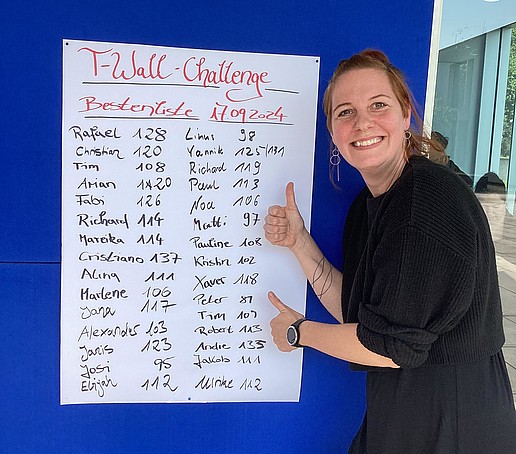 T-Wall-Challenge
Bestenliste 17.09.2024
Rafael 128 Linus 98
Christian 120 Yannik 125/131
Tim 108 Richard 119
Arian 120 Paul 113
Fabi 126 Noa 106
Richard 114 Matti 97
Mareka 114 Pauline 108
Cristiano 137 Kristin 102
Alina 111 Xaver 118
Marlene 106 Peter
Jana 117 Tim 107
Alexander 103 Robert 113
Janis 123 Andre 135
Josi 95 Jakob 111
Elijah 112 Ulrike 112